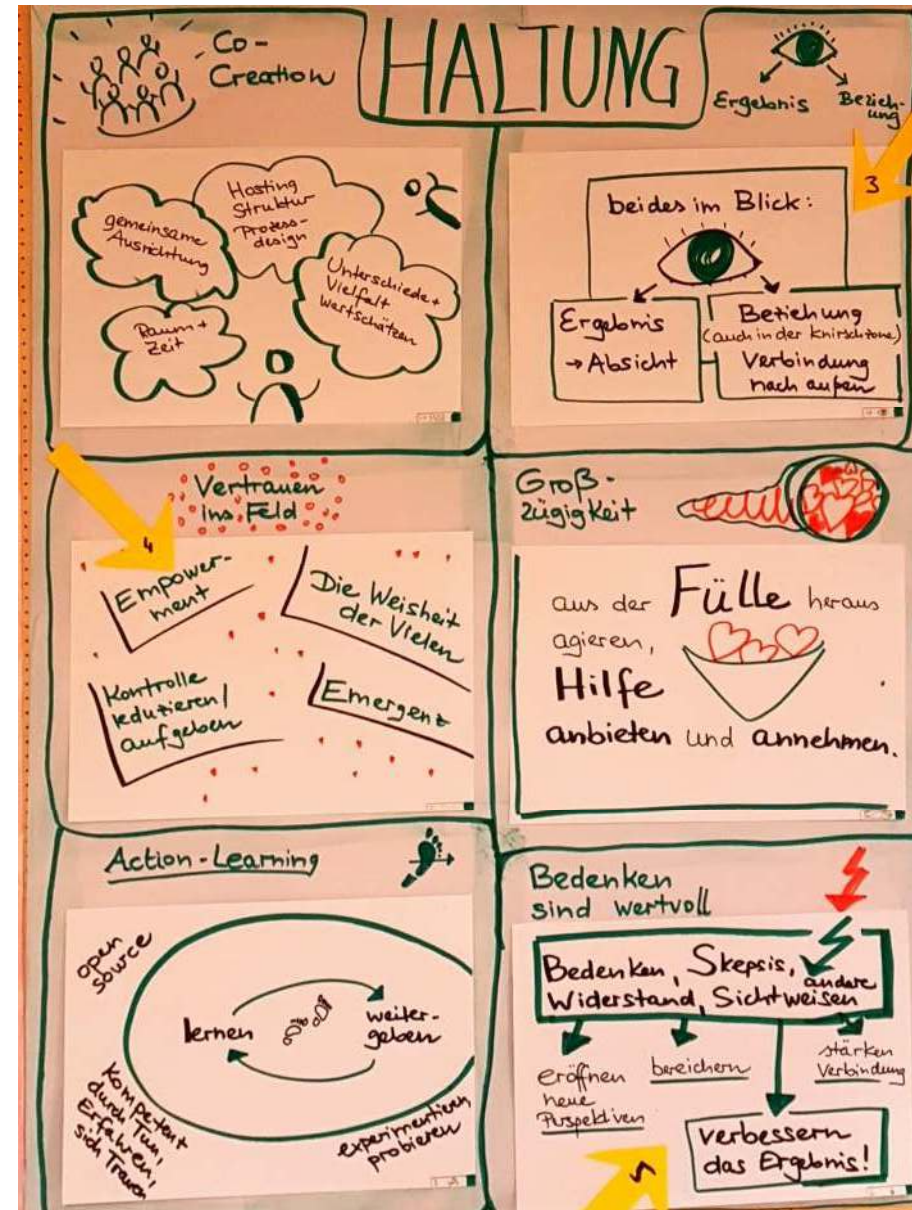 HALTUNG
Co-
Creation
Ergebnis
Bezieh-
ung
Hosting
Struktur
Prozess-
design
gemeinsame
Ausrichtung
Unterschiede +
Vielfalt
wertschätzen
Raum +
Zeit
3
beides im Blick:
Ergebnis
→ Absicht
Beziehung
(auch in der Knirschzone)
Verbindung
nach außen
Vertrauen
ins Feld
4
Empower-
ment
Die Weisheit
der Vielen
Kontrolle
reduzieren/
aufgeben
Emergenz
Groß-
zügigkeit
aus der Fülle heraus
agieren,
Hilfe
anbieten und annehmen.
Action-Learning
open
source
lernen
weiter-
geben
Kompetent
durch Tun,
Erfahren,
sich Trauen
experimentieren
probieren
Bedenken
sind wertvoll
Bedenken, Skepsis,
andere
Widerstand, Sichtweisen
eröffnen
neue
Perspektiven
bereichern
stärken
Verbindung
verbessern
das Ergebnis!